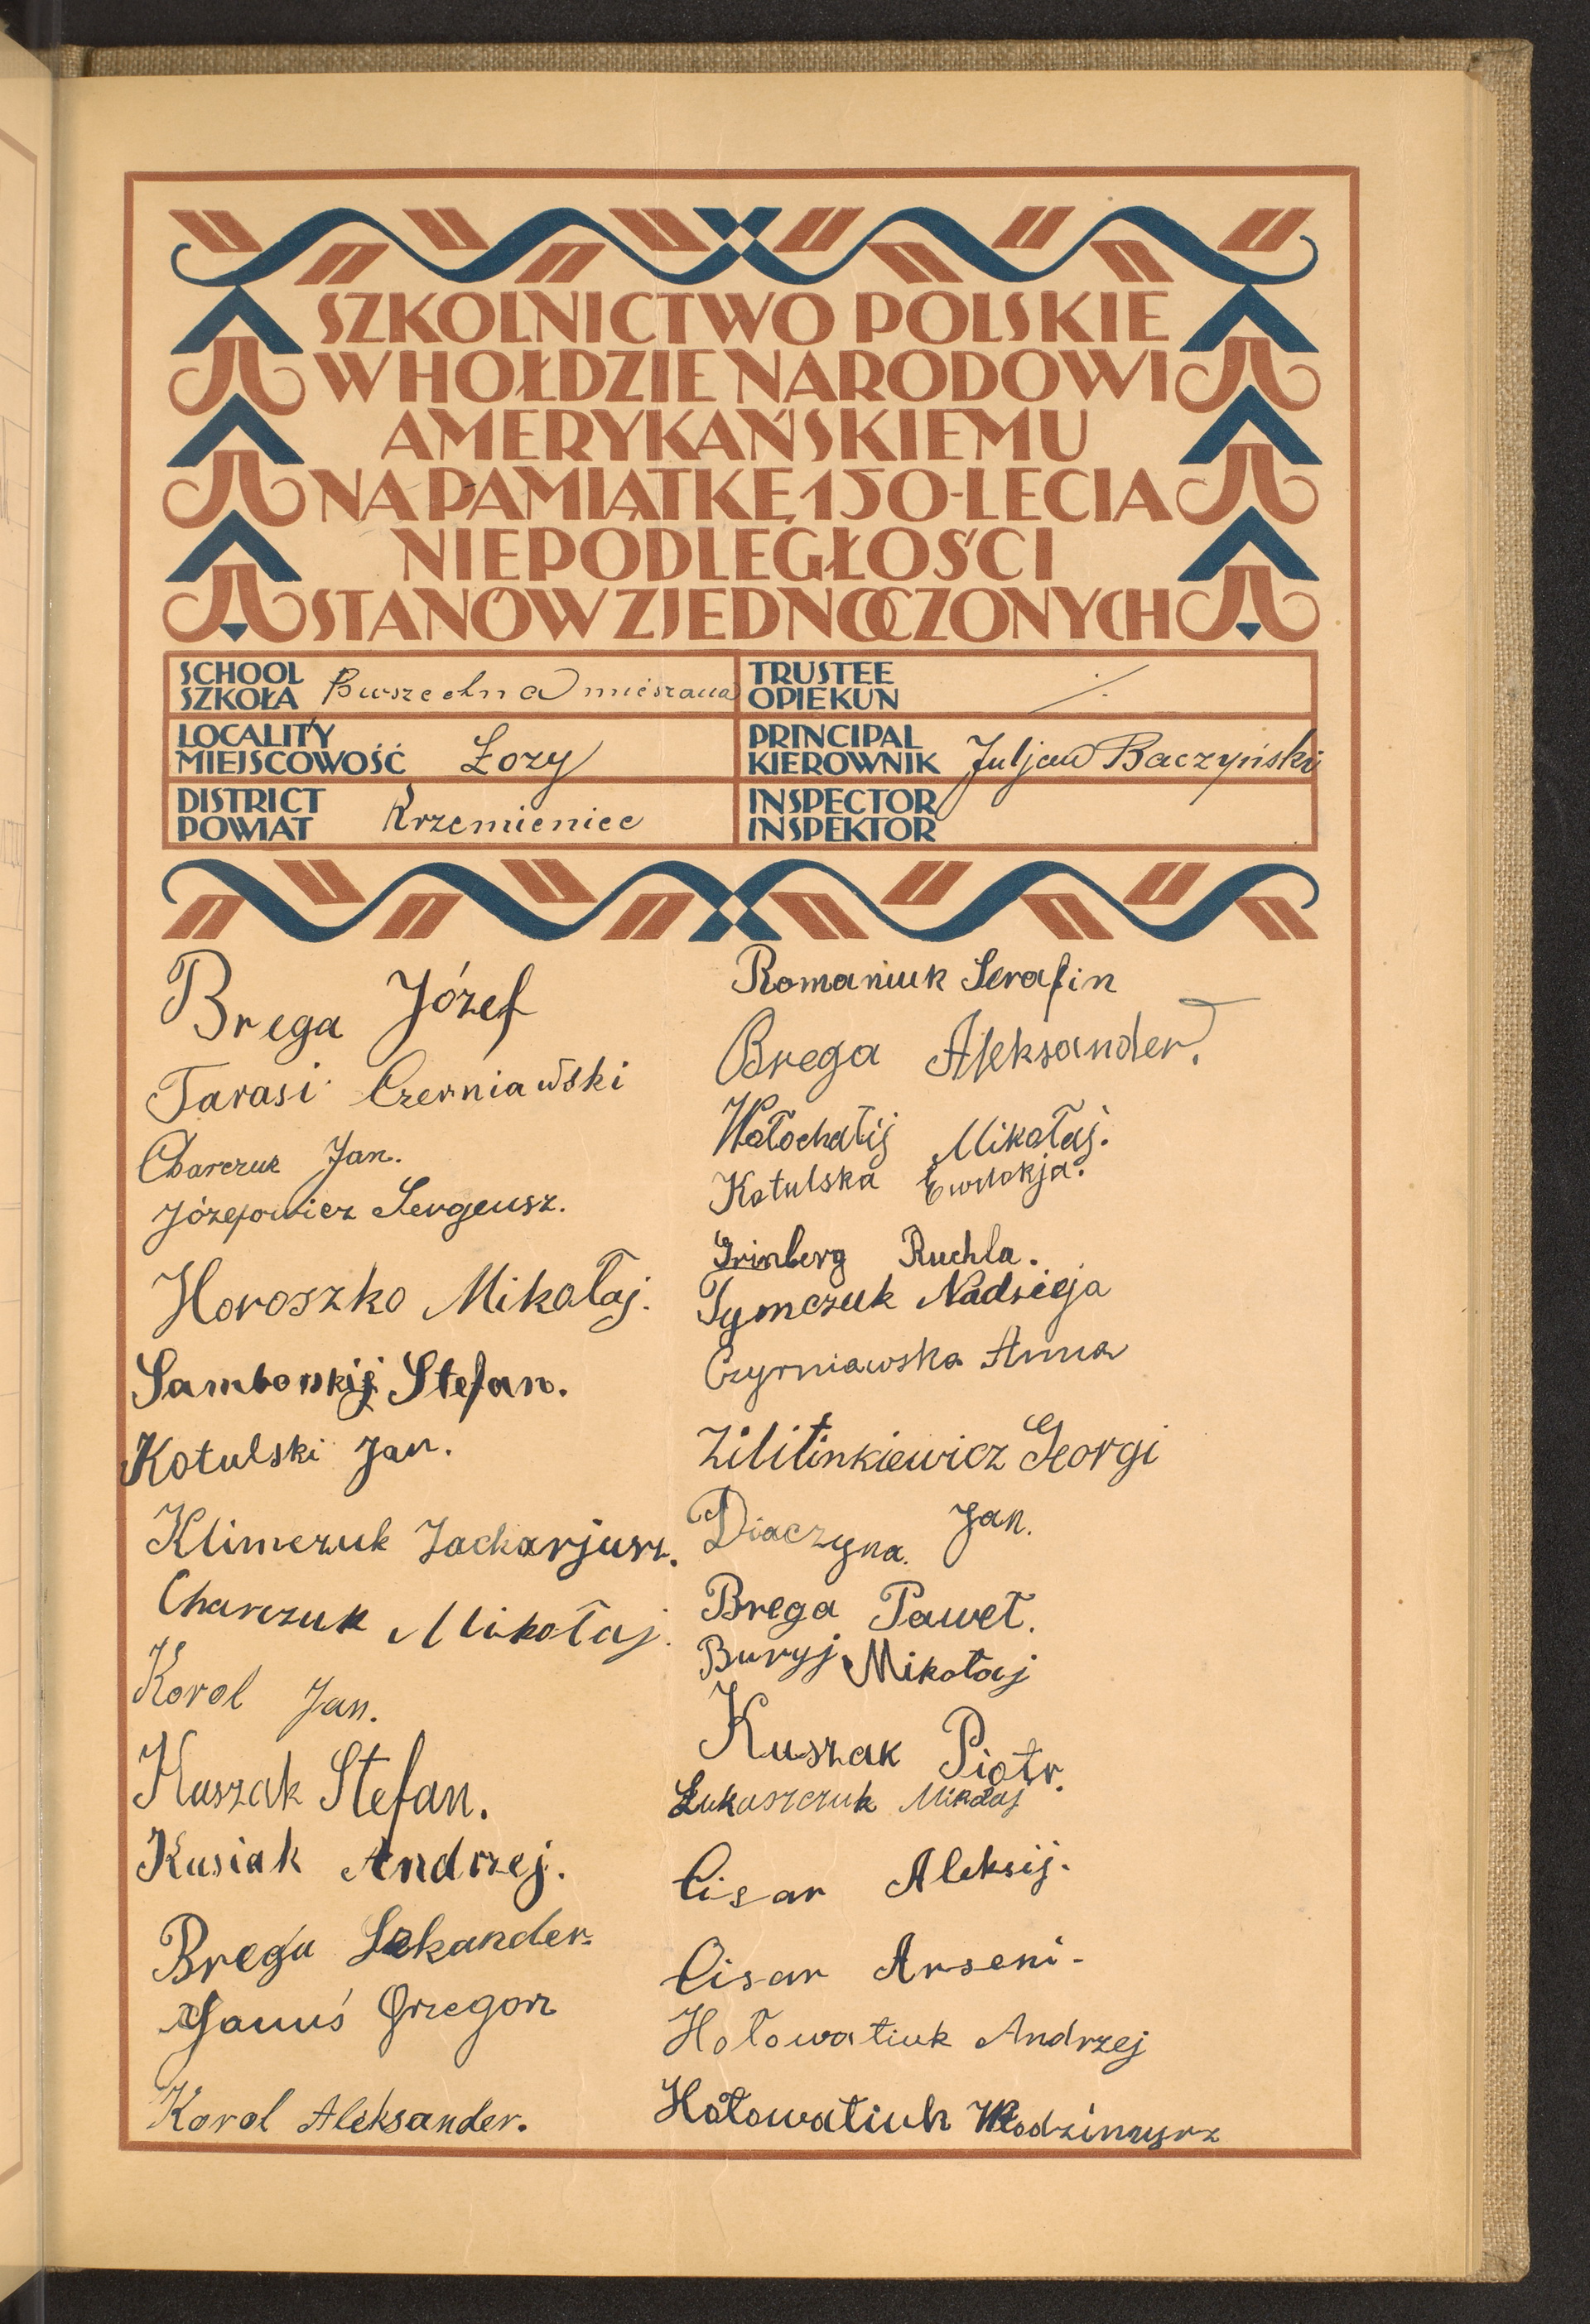 SZKOLNICTWO POLSKIE
W HOŁDZIE NARODOWI
AMERYKAŃSKIEMU
NA PAMIĄTKĘ 150-LECIA
NIEPODLEGŁOŚCI
STANÓW ZJEDNOCZONYCH
SCHOOL
SZKOŁA Pwszechna mieszana
TRUSTEE
OPIEKUN ./.
LOCALITY
MIEJSCOWOŚĆ Łozy
PRINCIPAL
KIEROWNIK Juljan Baczyński
DISTRICT
POWIAT Krzemieniec
INSPECTOR
INSPEKTOR
Brega Józef
Tarasi Czerniawski
Charczuk Jan.
Józefowicz Sergeusz.
Horoszko Mikołaj.
Samborskij Stefan.
Kotulski Jan.
Klimczuk Zacharjusz.
Charczuk Mikołaj.
Korol Jan.
Kuszak Stefan.
Kusiak Andrzej.
Brega
Januś Grzegorz
Korol Aleksander.
Romaniuk Serafin
Brega Aleksander.
Wołochatij Mikołaj.
Kotulska Ewdokja.
Grinberg Ruchla.
Tymczuk Nadzieja
Czyrniawska Anna
Zilitinkiewicz Georgi
Diaczyna. Jan.
Brega Paweł.
Buryj Mikołaj
Kuszak Piotr.
Łukaszczuk Mikołaj
Cisar Aleksij.
Cisar Arseni-
Hołowatiuk Andrzej
Hołowatiuk Włodzimyrz